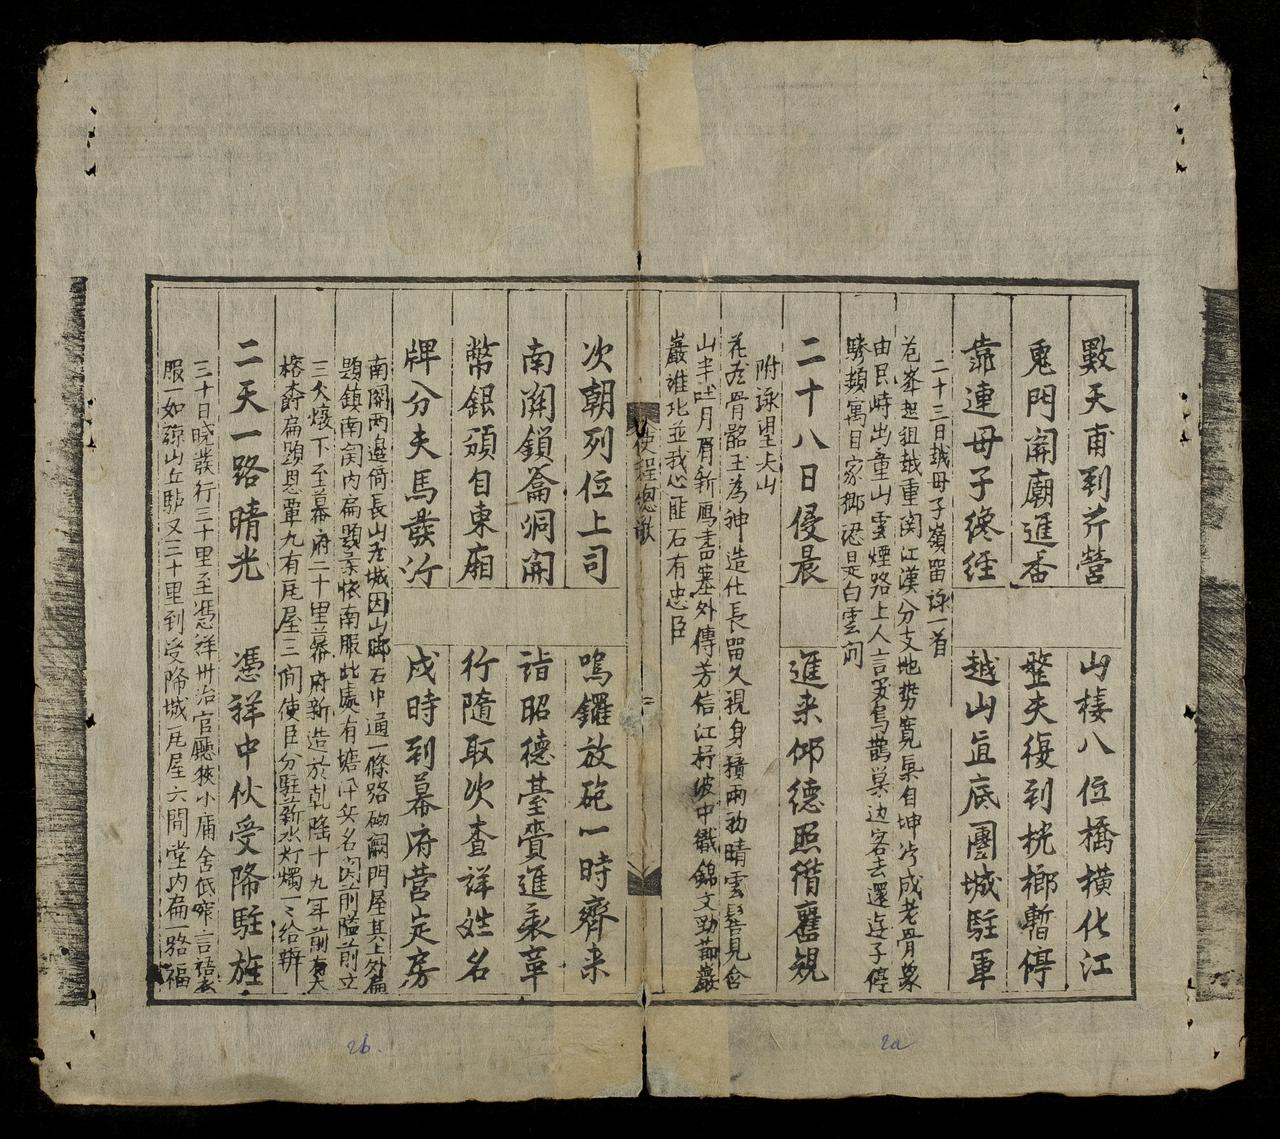 數天甫到芹營 山棲八位橋橫化江
鬼門開廟進香 整夫復到桄榔暫停
靠連母子纔經 越山直底團城駐軍
二十三日越母子嶺留詠一首
峯起祖越重関江漢分支地勢寬氣自坤
成老骨象
由民峙出童山雲煙路上人言 烏鵲巢边客去還 子停
驂頻寓目家鄉認是白雲间
二十八日侵晨 進来仰德照循舊規
附詠望夫山
花為骨骼玉為神造化長留久視身積雨初晴雲髻見含
山半吐月眉新鴈書塞外傳芳信江杼波中織錦文勁節巖
巖誰比並我心匪石有忠臣
使程總歌
二
次朝列位上司 鳴鑼放砲一時齊来
南關鎖籥洞開 詣昭德臺賫進表章
幣銀頒自東廂 行隨取次查詳姓名
牌分夫馬發行 戌時到幕府营定房
南關两邉倚長山為城因山 石中通一條路砌 門屋其上外扁
題鎮南関内扁題 懷南服此處有塘 兵名 前隘前立
三火煙下至幕府二十里幕府新造於乾隆十九年前
扁題恩覃九有瓦屋三间使臣分駐薪水灯燭一〻給辦
二天一路晴光 憑祥中伙受降駐旌
三十日曉發行三十里至憑祥州治官廳狹小庸舍低窄言語
服一如諒山丘驢又三十里到受降城瓦屋六間堂内扁一路福
2b.
2a